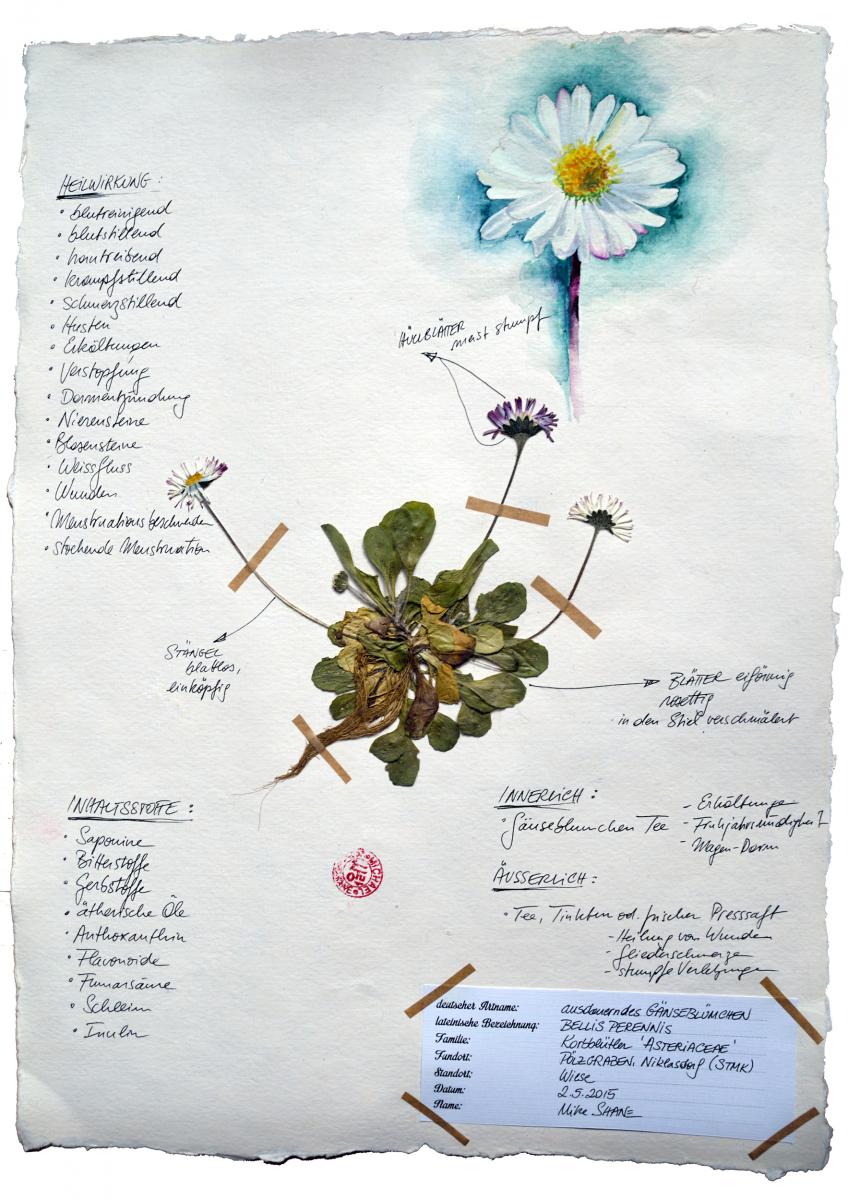 HEILWIRKUNG:
• blutreinigend
• blutstillend
• harntreibend
• krampfstillend
• Schmerzstillend
• Husten
• Erkältungen
• Verstopfung
• Darmentzündung
• Nierensteine
• Blasensteine
• Weissfluss
• Wunden
• Menstruationsbeschwerden
• stockende Menstruation
HÜLLBLÄTTER
meist stumpf
STÄNGEL
blattlos,
einköpfig
BLÄTTER eiförmig
rosettig
in den Stiel verschmälert
INHALTSSTOFFE:
• Saponine
• Bitterstoffe
• Gerbstoffe
• ätherische Öle
• Anthoxanthin
• Flavonoide
• Fumarsäure
• Schleim
• Inulin
INNERLICH:
• Gänseblümchen Tee
- Erkältunge
- Frühjahrsmüdigkeit
- Magen-Darm
ÄUSSERLICH:
• Tee, Tinktur od. frischer Presssaft
- Heilung von Wunden
- Gliederschmerzen
- stumpfe Verletzungen
MICHAEL
deutscher Artname: ausdauerndes GÄNSEBLÜMCHEN
lateinische Bezeichnung: BELLIS PERENNIS
Familie: Korbblütler 'ASTERIACEAE'
Fundort: PÖLZGRABEN, Niklasdorf (STMK)
Standort: Wiese
Datum: 2.5.2015
Name: Mike SHANE